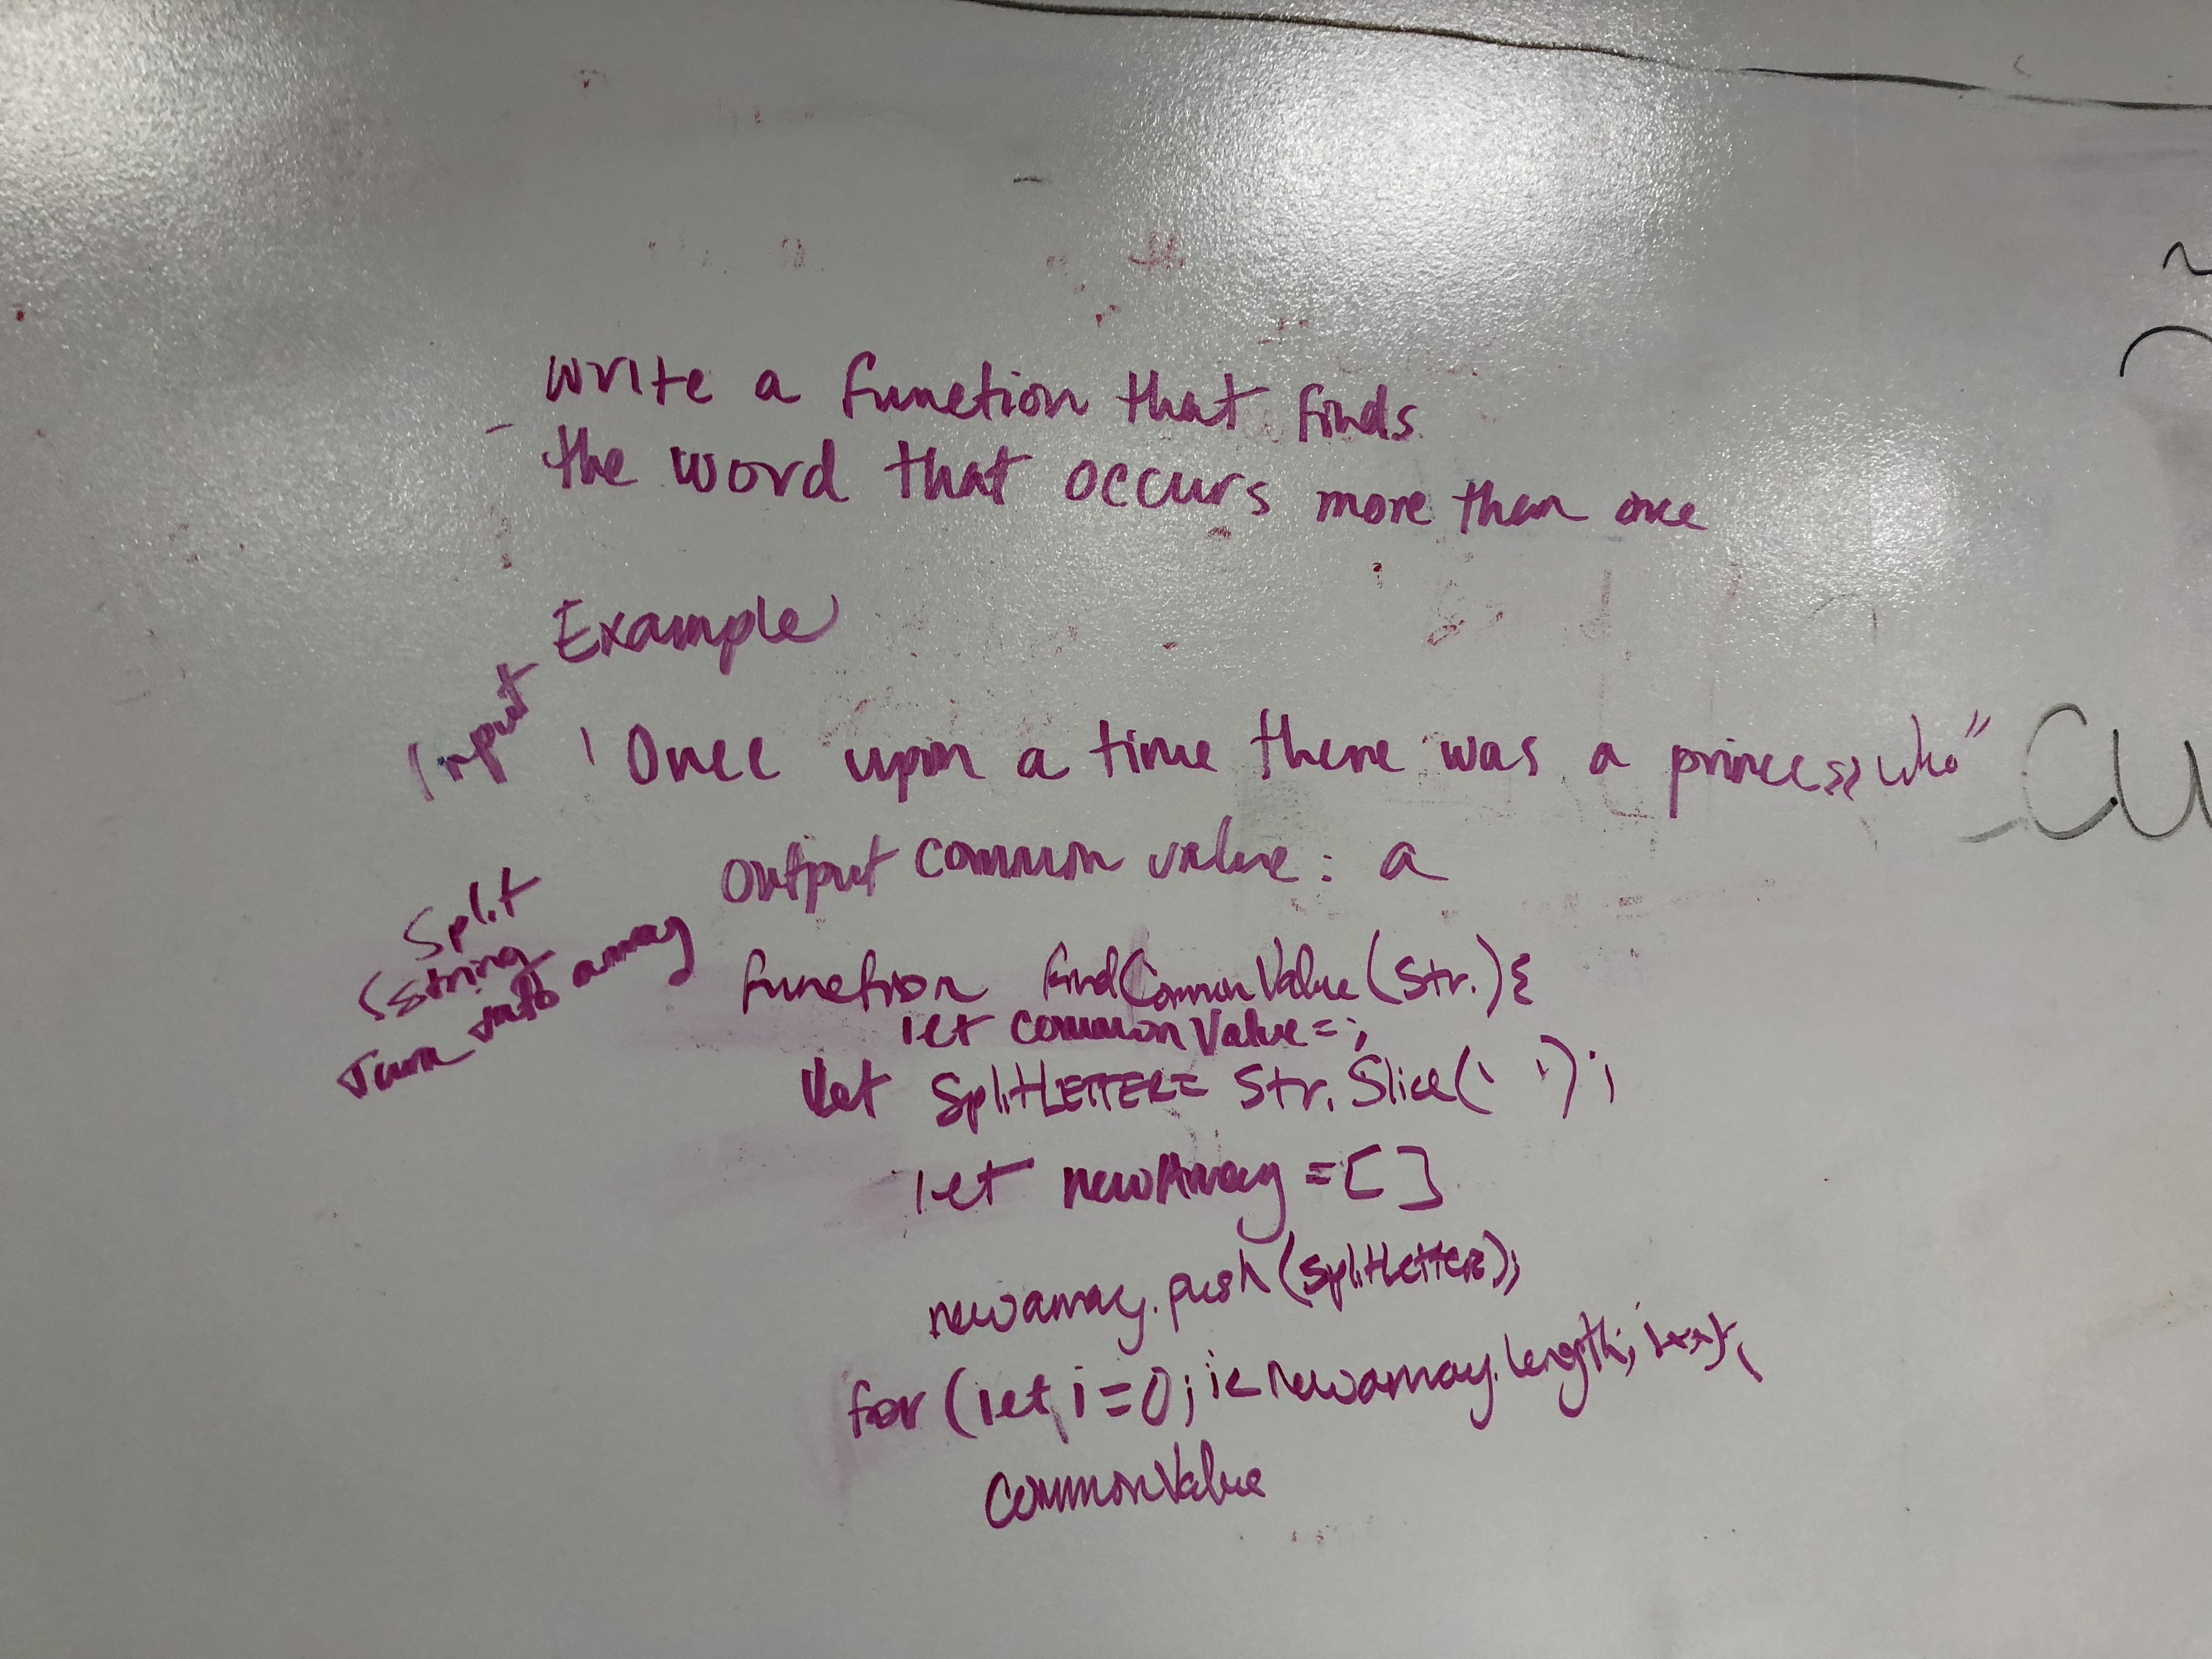 write a function that finds
the word that occurs more than once
Example
Input
'Once upon a time there was a princess who"
output common value: a
Split
string
turn into array
function findCommonValue(Str.){
let commonValue=;
let SplitLETTER= Str.Slice(' ');
let newArray=[]
newarray.push(SplitLETTER);
for (let i=0; i< newarray.length; i++){
commonValue
CU